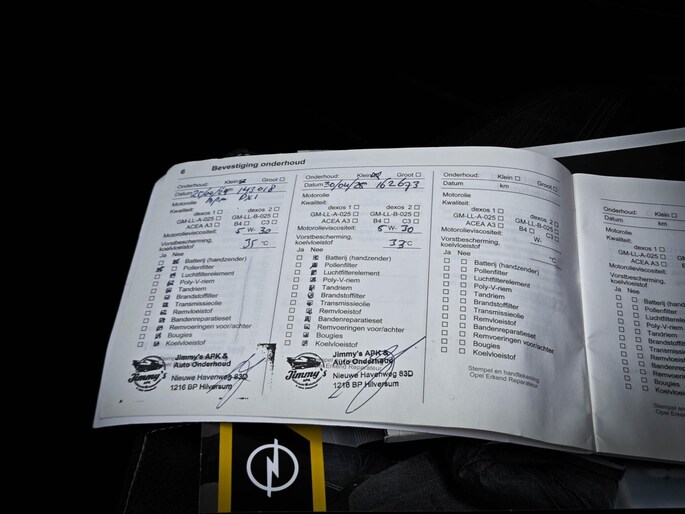 6 Bevestiging onderhoud
Onderhoud: Klein Groot
Datum 143018
Motorolie
Kwaliteit:
dexos 1 dexos 2
GM-LL-A-025 GM-LL-B-025
ACEA A3 B4 C3
Motorolieviscositeit: 5 W- 30
Vorstbescherming, koelvloeistof 35 °C
Ja Nee
Batterij (handzender)
Pollenfilter
Luchtfilterelement
Poly-V-riem
Tandriem
Brandstoffilter
Transmissieolie
Remvloeistof
Bandenreparatieset
Remvoeringen voor/achter
Bougies
Koelvloeistof
Jimmy's APK &
Auto Onderhoud
Jimmy's
Nieuwe Havenweg 83D
1216 BP Hilversum
Onderhoud: Klein Groot
Datum 30/04/25 162673
Motorolie
Kwaliteit:
dexos 1 dexos 2
GM-LL-A-025 GM-LL-B-025
ACEA A3 B4 C3
Motorolieviscositeit: 5 W- 30
Vorstbescherming,
koelvloeistof 33 °C
Ja Nee
Batterij (handzender)
Pollenfilter
Luchtfilterelement
Poly-V-riem
Tandriem
Brandstoffilter
Transmissieolie
Remvloeistof
Bandenreparatieset
Remvoeringen voor/achter
Bougies
Koelvloeistof
Jimmy's APK &
Auto Onderhoud
Jimmy's
Nieuwe Havenweg 83D
1216 BP Hilversum
Onderhoud: Klein Groot
Datum km
Motorolie
Kwaliteit:
dexos 1 dexos 2
GM-LL-A-025 GM-LL-B-025
ACEA A3 B4 C3
Motorolieviscositeit: W-
Vorstbescherming,
koelvloeistof °C
Ja Nee
Batterij (handzender)
Pollenfilter
Luchtfilterelement
Poly-V-riem
Tandriem
Brandstoffilter
Transmissieolie
Remvloeistof
Bandenreparatieset
Remvoeringen voor/achter
Bougies
Koelvloeistof
Stempel en handtekening
Opel Erkend Reparateur
Onderhoud: Klein
Datum km
Motorolie
Kwaliteit:
dexos 1
GM-LL-A-025
ACEA A3
Motorolieviscositeit:
Vorstbescherming,
koelvloeistof
Ja Nee
Batterij (handzender)
Pollenfilter
Luchtfilterelement
Poly-V-riem
Tandriem
Brandstoffilter
Transmissieolie
Remvloeistof
Bandenreparatieset
Remvoeringen voor/achter
Bougies
Koelvloeistof
Stempel en handtekening
Opel Erkend Reparateur